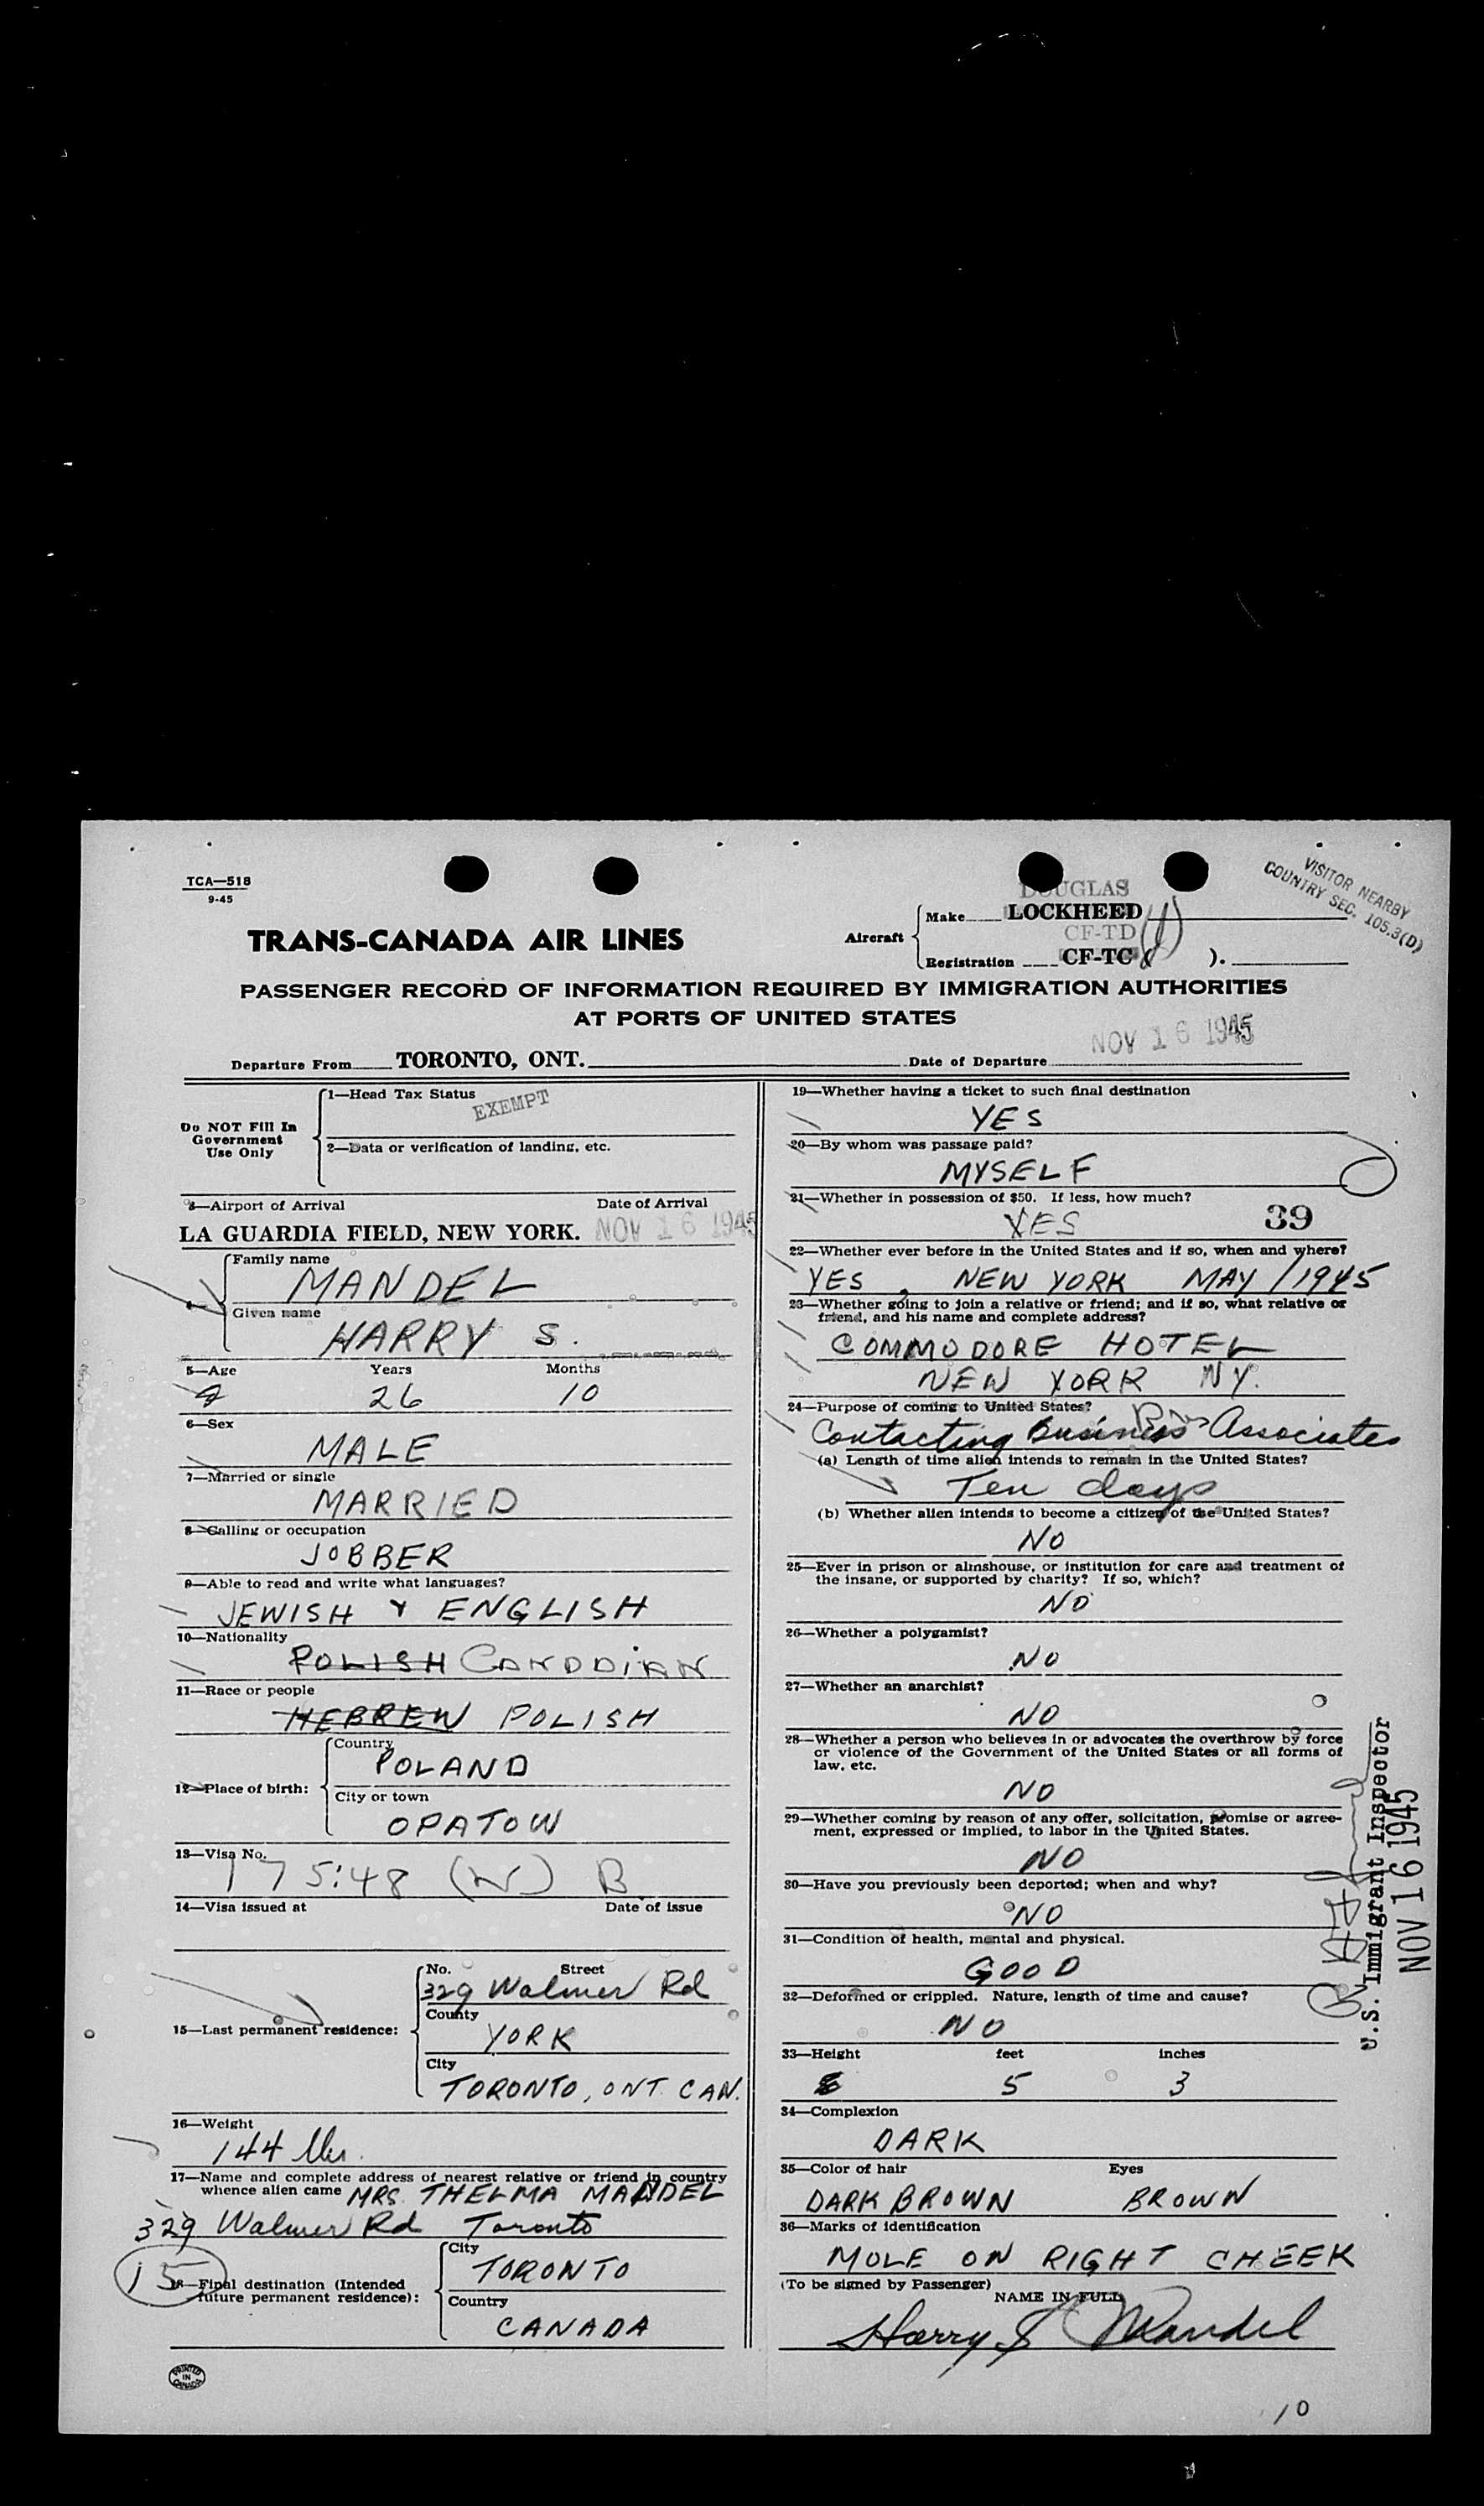 TCA—518
9-45
VISITOR NEARBY
COUNTRY SEC. 105.3(D)
TRANS-CANADA AIR LINES
Aircraft
DOUGLAS
Make LOCKHEED
CF-TD
Registration CF-TC ( ).
PASSENGER RECORD OF INFORMATION REQUIRED BY IMMIGRATION AUTHORITIES
AT PORTS OF UNITED STATES
Departure From TORONTO, ONT. Date of Departure NOV 16 1945
Do NOT Fill In
Government
Use Only
1—Head Tax Status EXEMPT
2—Data or verification of landing, etc.
3—Airport of Arrival Date of Arrival
LA GUARDIA FIELD, NEW YORK. NOV 16 1945
4— Family name
MANDEL
Given name
HARRY S.
5—Age Years Months
26 10
6—Sex
MALE
7—Married or single
MARRIED
8—Calling or occupation
JOBBER
9—Able to read and write what languages?
JEWISH & ENGLISH
10—Nationality
POLISH CANADIAN
11—Race or people
HEBREW POLISH
12—Place of birth:
Country
POLAND
City or town
OPATOW
13—Visa No.
175:48 (W) B
14—Visa issued at Date of issue
15—Last permanent residence:
No. Street
329 Walmer Rd
County
YORK
City
TORONTO, ONT. CAN.
16—Weight
144 lbs.
17—Name and complete address of nearest relative or friend in country
whence alien came MRS. THELMA MANDEL
329 Walmer Rd Toronto
15
18—Final destination (Intended
future permanent residence):
City
TORONTO
Country
CANADA
PRINTED
IN
CANADA
19—Whether having a ticket to such final destination
YES
20—By whom was passage paid?
MYSELF
21—Whether in possession of $50. If less, how much?
YES 39
22—Whether ever before in the United States and if so, when and where?
YES, NEW YORK MAY/1945
23—Whether going to join a relative or friend; and if so, what relative or
friend, and his name and complete address?
COMMODORE HOTEL
NEW YORK NY.
24—Purpose of coming to United States?
Contacting Business Associates
(a) Length of time alien intends to remain in the United States?
Ten days
(b) Whether alien intends to become a citizen of the United States?
NO
25—Ever in prison or almshouse, or institution for care and treatment of
the insane, or supported by charity? If so, which?
NO
26—Whether a polygamist?
NO
27—Whether an anarchist?
NO
28—Whether a person who believes in or advocates the overthrow by force
or violence of the Government of the United States or all forms of
law, etc.
NO
29—Whether coming by reason of any offer, solicitation, promise or agree-
ment, expressed or implied, to labor in the United States.
NO
30—Have you previously been deported; when and why?
NO
31—Condition of health, mental and physical.
GOOD
32—Deformed or crippled. Nature, length of time and cause?
NO
33—Height feet inches
5 3
34—Complexion
DARK
35—Color of hair Eyes
DARK BROWN BROWN
36—Marks of identification
MOLE ON RIGHT CHEEK
(To be signed by Passenger)
NAME IN FULL
Harry S Mandel
U.S. Immigrant Inspector
NOV 16 1945
10